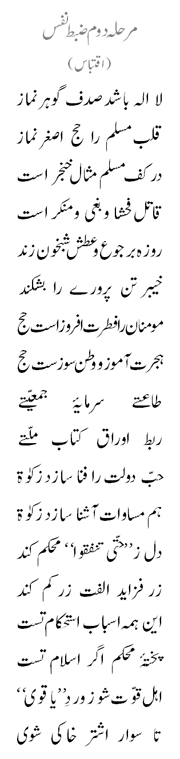 مرحلہ دوم ضبط نفس
(اقتباس)
لا الہ باشد صدف گوہر نماز
قلب مسلم را حج اصغر نماز
در کف مسلم مثال خنجر است
قاتل فحشا و بغی و منکر است
روزہ بر جوع و عطش شبخون زند
خیبر تن پروری را بشکند
مومنان را فطرت افروز است حج
ہجرت آموز و وطن سوز ست حج
طاعتے سرمایۂ جمعیّتے
ربط اوراق کتاب ملّتے
حبّ دولت را فنا سازد زکوٰۃ
ہم مساوات آشنا سازد زکوٰۃ
دل ز ’’حتّٰی تنفقوا‘‘ محکم کند
زر فزاید الفت زر کم کند
این ہمہ اسباب استحکام تست
پختۂ محکم اگر اسلام تست
اہل قوّت شو ز ورد ’’یا قوی‘‘
تا سوار اشتر خاکی شوی